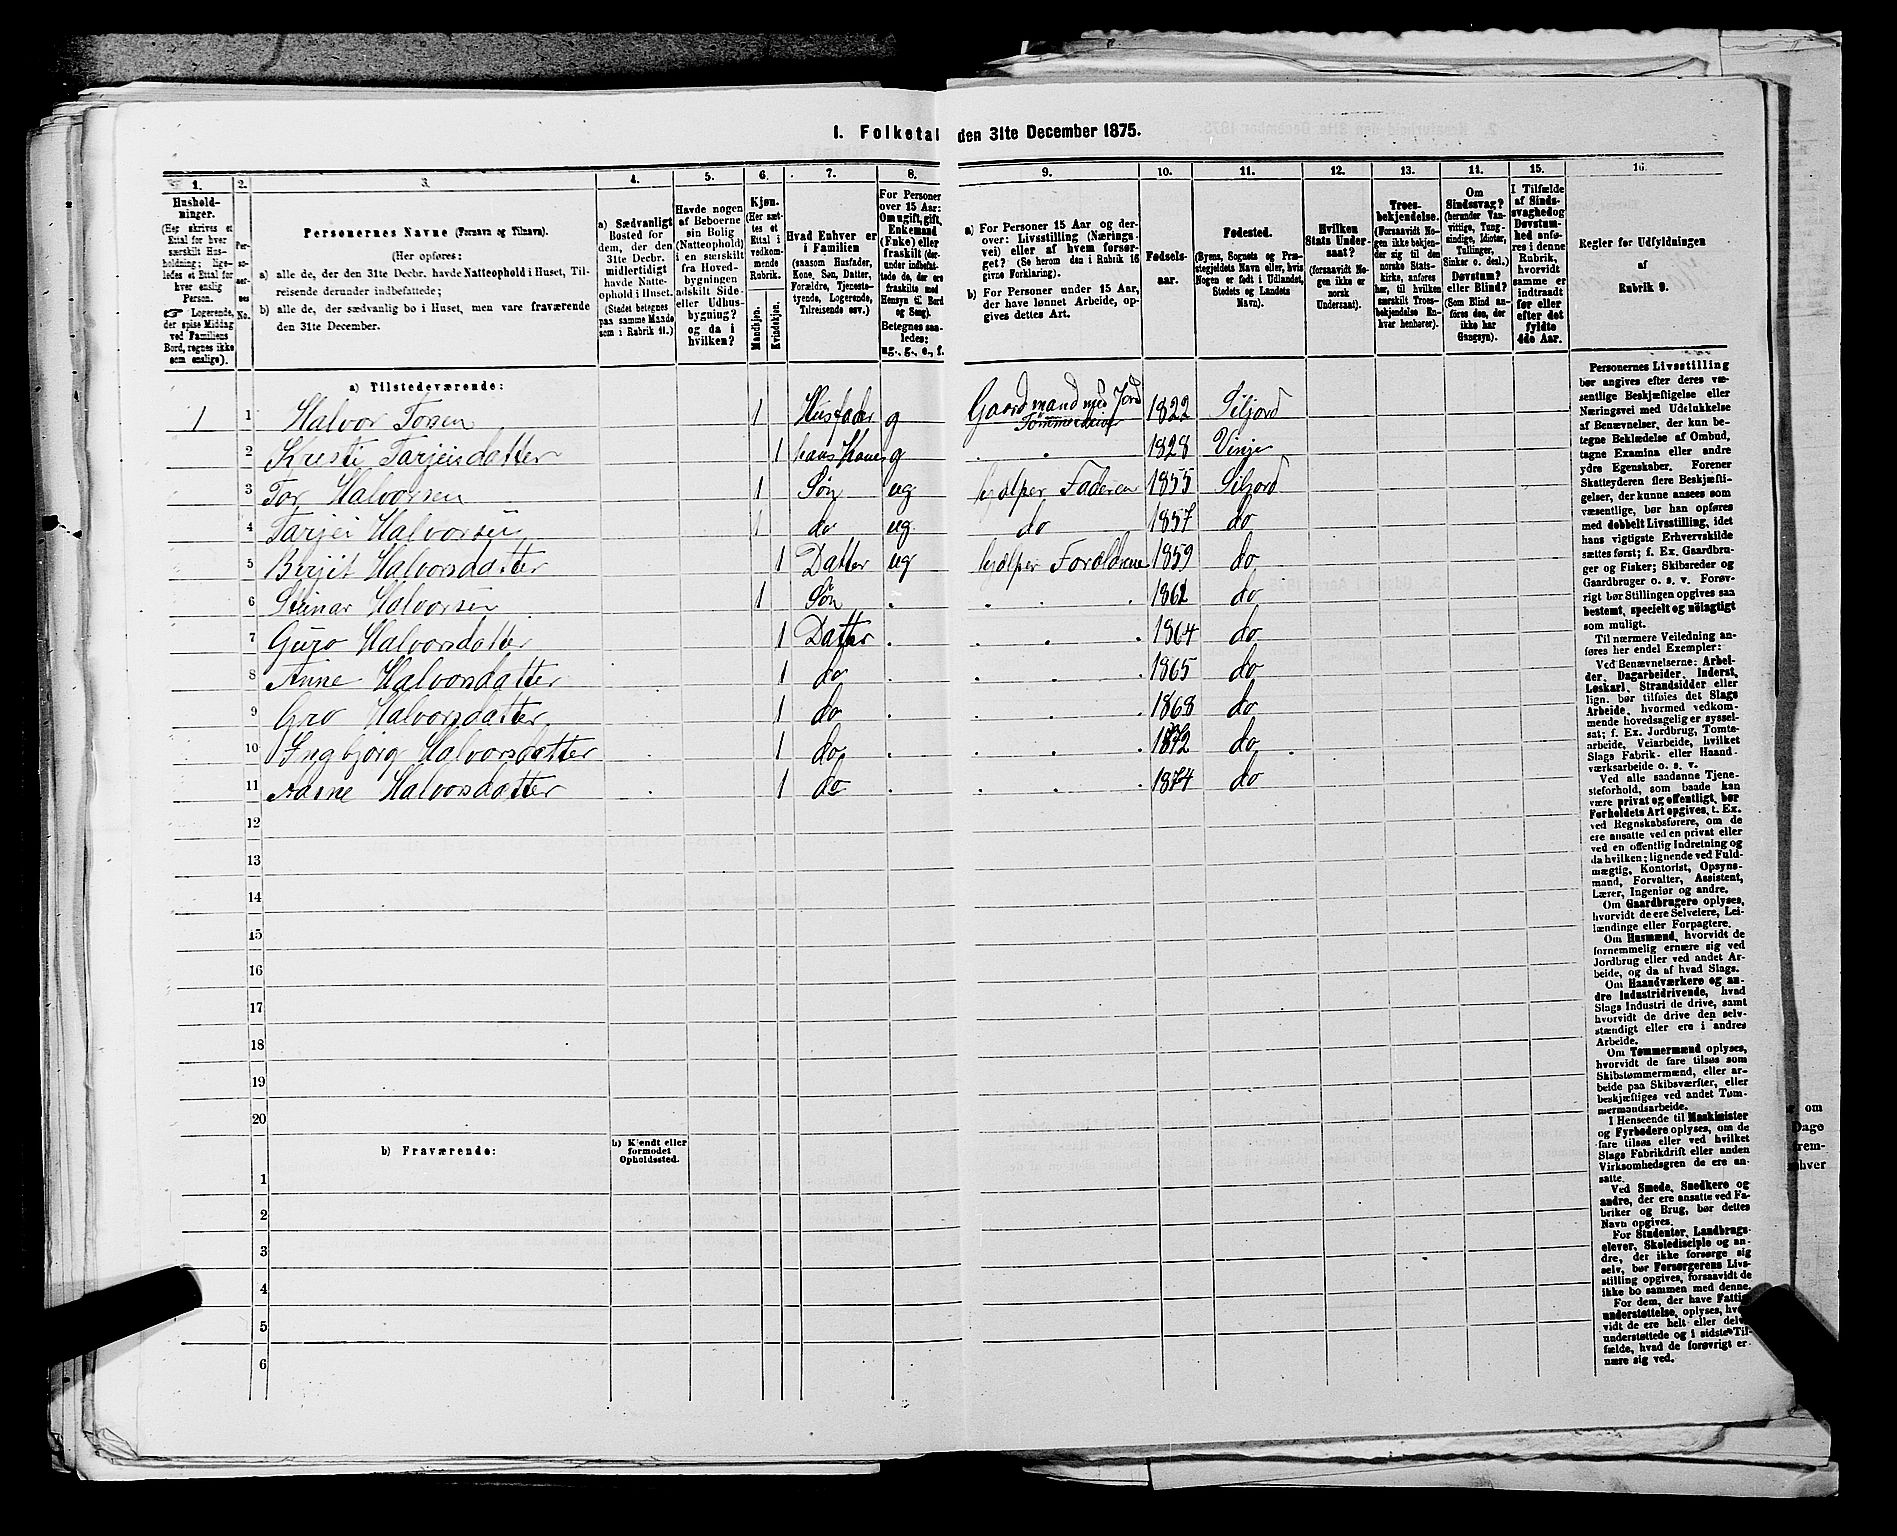 1. Folketal den 31te December 1875.
1.
2.
3.
4.
5.
6.
7.
8.
9.
10.
11.
12.
13.
14.
15.
16.
Hushold-
ninger.
(Her skrives et
Ettal for hver
særskilt Hus-
holdning; lige-
ledes et Ettal for
hver enslig
Person.
☞ Logerende,
der spise Middag
ved Familiens
Bord, regnes ikke
som enslige).
Per-
so-
ner-
nes
No.
Personernes Navne (Fornavn og Tilnavn).
(Her opføres:
a) alle de, der den 31te Decbr. havde Natteophold i Huset, Til-
reisende derunder indbefattede;
b) alle de, der sædvanlig bo i Huset, men vare fraværende
den 31te December.
a) Sædvanligt
Bosted for
dem, der den
31te Decbr.
midlertidigt
havde Natte-
ophold i Huset.
(Stedet betegnes
paa samme Maade
som i Rubrik 11.)
Havde nogen
af Beboerne
sin Bolig
(Natteophold)
i en særskilt
fra Hoved-
bygningen
adskilt Side-
eller Udhus-
bygning?
og da i
hvilken?
Kjøn.
(Her sæt-
tes et
Ettal i
vedkom-
mende
Rubrik.
Mandkjøn.
Kvindekjøn.
Hvad Enhver er
i Familien
(saasom Husfader,
Kone, Søn, Datter,
Forældre, Tjeneste-
tyende, Logerende,
Tilreisende osv.)
For Personer
over 15 Aar:
Om ugift, gift,
Enkemand
(Enke) eller
fraskilt (der-
under indbefat-
tede de, der ere
fraskilte med
Hensyn til Bord
og Seng).
Betegnes saa-
ledes:
ug., g., e., f.
a) For Personer 15 Aar og der-
over: Livsstilling (Nærings-
vei) eller af hvem forsør-
get? (Se herom den i Rubrik 16
givne Forklaring).
b) For Personer under 15 Aar,
der have lønnet Arbeide, op-
gives dettes Art.
Fødsels-
aar.
Fødested.
(Byens, Sognets og Præ-
stegjeldets Navn eller, hvis
Nogen er født i Udlandet,
Stedets og Landets
Navn).
Hvilken
Stats Under-
saat?
(forsaavidt No-
gen ikke er
norsk
Undersaat).
Troes-
bekjendelse.
(Forsaavidt No-
gen ikke bekjen-
der sig til den
norske Stats-
kirke, anføres
her, til hvilken
særskilt Troes-
bekjendelse En-
hver henhører).
Om
Sindssvag?
(herunder Van-
vittige, Tung-
sindige, Idioter,
Tullinger,
Sinker o. desl.)
Døvstum?
eller Blind?
(Som Blind an-
føres den, der
ikke har
Gangsyn).
I Tilfælde
af Sinds-
svaghed og
Døvstum-
hed anfø-
res i denne
Rubrik,
hvorvidt
samme er
indtraadt
før eller
efter det
fyldte
4de Aar.
Regler for Udfyldningen
af
Rubrik 9.
a) Tilstedeværende:
1 1 Halvor Torsen 1 Husfader g Gaardmand med Jord Tømmerdriver 1822 Siljord
2 Kresti Tarjeisdatter 1 hans Kone g 1828 Vinje
3 Tor Halvorsen 1 Søn ug hjælper Faderen 1855 Siljord
4 Tarjei Halvorsen 1 do ug. do 1857 do
5 Birjit Halvorsdatter 1 Datter ug hjælper Forældrene 1859 do
6 Steinar Halvorsen 1 Søn 1862 do
7 Guro Halvorsdatter 1 Datter 1864 do
8 Anne Halvorsdatter 1 do 1865 do
9 Gro Halvorsdatter 1 do 1868 do
10 Ingbjørg Halvorsdatter 1 do 1872 do
11 Aasne Halvorsdatter 1 do 1874 do
12
13
14
15
16
17
18
19
20
b) Fraværende:
b) Kjendt eller
formodet
Opholdssted.
1
2
3
4
5
6
Personernes Livsstilling
bør angives efter deres væ-
sentlige Beskjæftigelse eller
Næringsvei med Udelukkelse
af Benævnelser, der kun be-
tegne Beklædelse af Ombud,
tagne Examina eller andre
ydre Egenskaber. Forener
Skatteyderen flere Beskjæfti-
gelser, der kunne ansees som
væsentlige, bør han opføres
med dobbelt Livsstilling, idet
hans vigtigste Erhvervskilde
sættes først; f. Ex. Gaardbru-
ger og Fisker; Skibsreder og
Gaardbruger o. s. v. Forøv-
rigt bør Stillingen opgives saa
bestemt, specielt og nöiagtigt
som muligt.
Til nærmere Veiledning an-
føres her endel Exempler:
Ved Benævnelserne: Arbei-
der, Dagarbeider, Inderst,
Løskarl, Strandsidder eller
lign. bør tilføies det Slags
Arbeide, hvormed vedkom-
mende hovedsagelig er syssel-
sat; f. Ex. Jordbrug, Tomte-
arbeide, Veiarbeide, hvilket
Slags Fabrik- eller Haand-
værksarbeide o. s. v.
Ved alle saadanne Tjene-
steforhold, som baade kan
være privat og offentligt, bør
Forholdets Art opgives, t. Ex.
ved Regnskabsførere, om de
ere ansatte ved en privat eller
ved en offentlig Indretning og
da hvilken; lignende ved Fuld-
mægtig, Kontorist, Opsyns-
mand, Forvalter, Assistent,
Lærer, Ingeniør og andre.
Om Gaardbrugere oplyses,
hvorvidt de ere Selveiere, Lei-
lændinge eller Forpagtere.
Om Husmænd, hvorvidt de
fornemmelig ernære sig ved
Jordbrug eller ved andet Ar-
beide, og da af hvad Slags.
Om Haandværkere og an-
dre Industridrivende, hvad
Slags Industri de drive, samt
hvorvidt de drive den selv-
stændigt eller ere i andres
Arbeide.
Om Tømmermænd oplyses,
hvorvidt de fare tilsøs som
Skibstømmermænd, eller ar-
beide paa Skibsværfter, eller
beskjæftiges ved andet Tøm-
mermandsarbeide.
I Henseende til Maskinister
og Fyrbødere oplyses, om de
fare tilsøs eller ved hvilket
Slags Fabrikdrift eller anden
Virksomhedsgren de ere an-
satte.
Ved Smede, Snedkere og
andre, der ere ansatte ved Fa-
briker og Brug, bør dettes
Navn opgives.
For Studenter, Landbrugs-
elever, Skoledisciple og an-
dre, der ikke forsørge sig
selv, bør Forsørgerens Livs-
stilling opgives, forsaavidt de
ikke bo sammen med denne.
For dem, der have Fattig-
understøttelse, oplyses, hvor-
vidt de ere helt eller delvis
understøttede og i sidste Til-
fælde, hvad de forøvrigt er-
nære sig ved.
om
Dage
frem-
hver